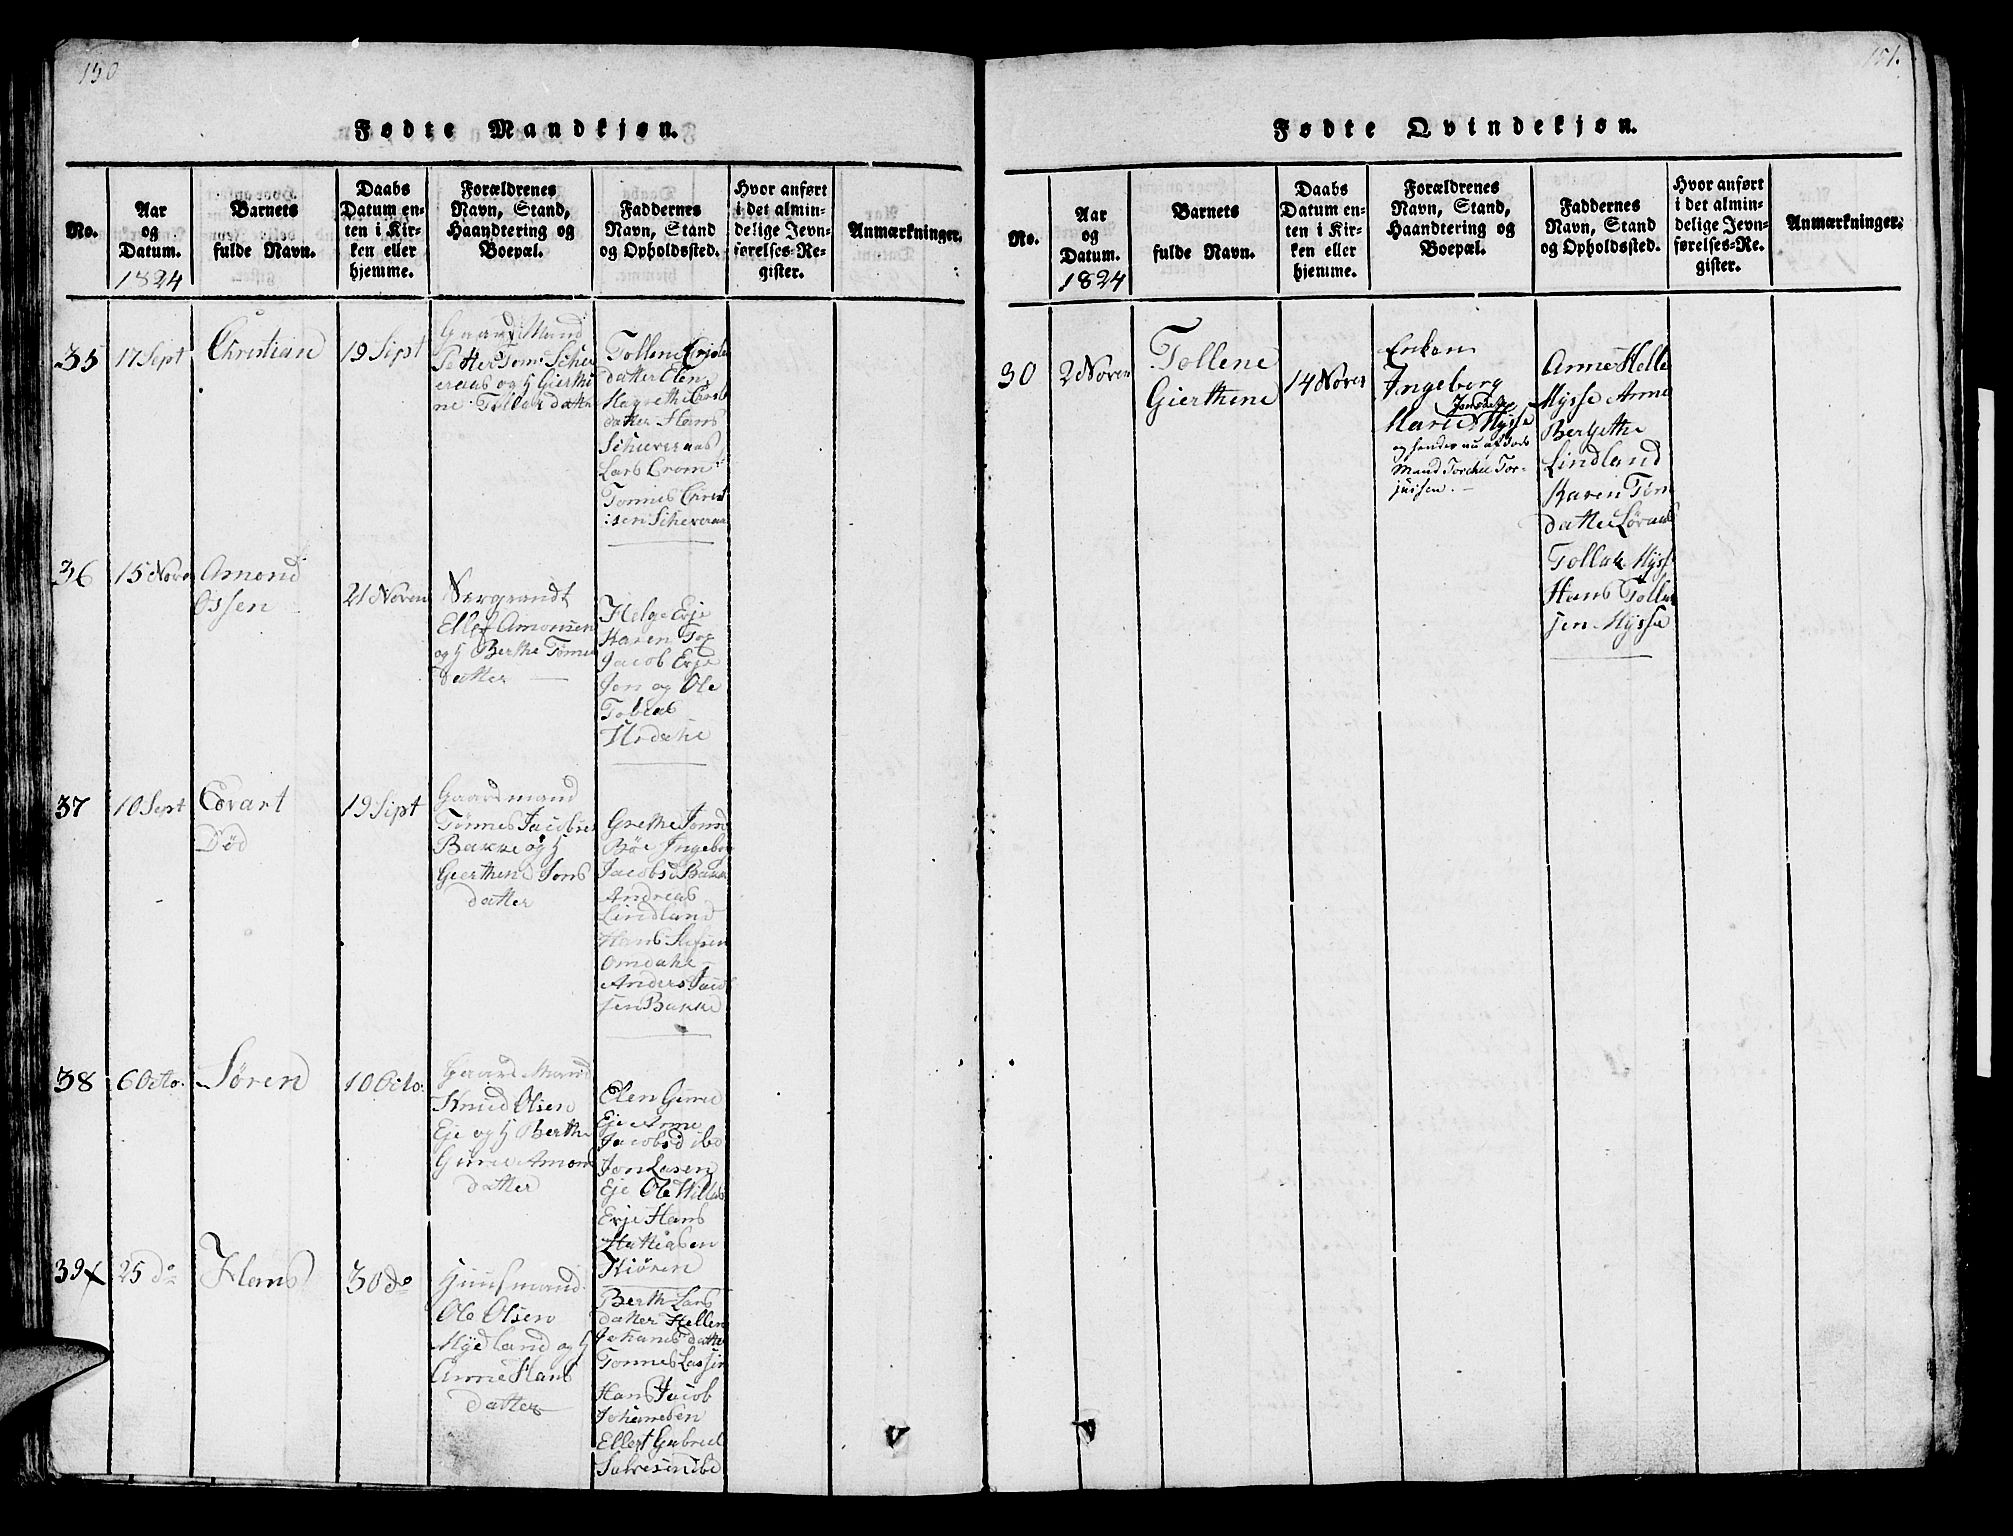 150
Fødte Mandkjøn.
No.
Aar
og
Datum.
1824
Barnets
fulde Navn.
Daabs
Datum en-
ten i Kir-
ken eller
hjemme.
Forældrenes
Navn, Stand,
Haandtering og
Boepæl.
Faddernes
Navn, Stand
og Opholdssted.
Hvor anført
i det almin-
delige Jevn-
førelses-Re-
gister.
Anmærkninger.
35
17 Sept
Christian
19 Sept
Gaard Mand
Petter Tom:
og H Gierthi
ne Tollax datte
Tollene
datter Elen
datter Hans
Scheveraas
Lars Crom
Tonnes Christ
:sen Scheveraa
36
15 Nover
Amond
Ossen
21 Noven
Nergrandt
Ellef Amonsen
og H Berthe Tømes
datter
Helge Erje
Karen Tor
Jacob Erje
Jon og Ole
Tobias
Urdahl
37
10 Sept
Edvart
Død
19 Sept
Gaardmand
Tønnes Jacobsen
Bakke og H
Gierthen Jons
datter
Grethe Jonsd
Bøe Ingebor
Jacobsd Bakk
Andreas
Lindland
Hans
Omdahl
Anders Jacob
sen Bakke
38
6 Octo.
Søren
10 Octo:
Gaard Mand
Knud Olsen
Eje og H Berthe
Gurie Amond
datter
Elen Gurie
Eje Anne
Jacobsd ibd
Jon Lasen
Eje Ole Villas
Erje Hans
Mathiasen
Kiøren
39
25 do
Hans
30 do
Huusmand
Ole Olsen
Mydland og H
Anne Hans
datter
Berth Lars
datter Hellen
Johanes datter
Tonnes Lassen
Hans Jacob
Johannesen
Ellert Gabriel
Salvesen ibd
151.
Fødte Qvindekjøn.
No.
Aar
og
Datum.
1824
Barnets
fulde Navn.
Daabs
Datum en-
ten i Kir-
ken eller
hjemme.
Forældrenes
Navn, Stand,
Haandtering og
Boepæl.
Faddernes
Navn, Stand
og Opholdssted.
Hvor anført
i det almin-
delige Jevn-
førelses-Re-
gister.
Anmærkninger.
30
2 Noven
Tollene
Gierthene
14 Noven
Enken
Ingeborg
Jonsdatter
Marie Mysse
og hendes nu af døde
Mand Torckel Tor-
juisen.
Anne Helle
Mysse Anne
Bergithe
Lindland
Karen Tøn
datter Løvaas
Tollak Myss
Hans Tollak
sen Mysse